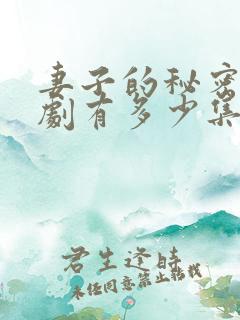 妻子的秘密
劇有多少集
君生逢时
未经同意禁止转载